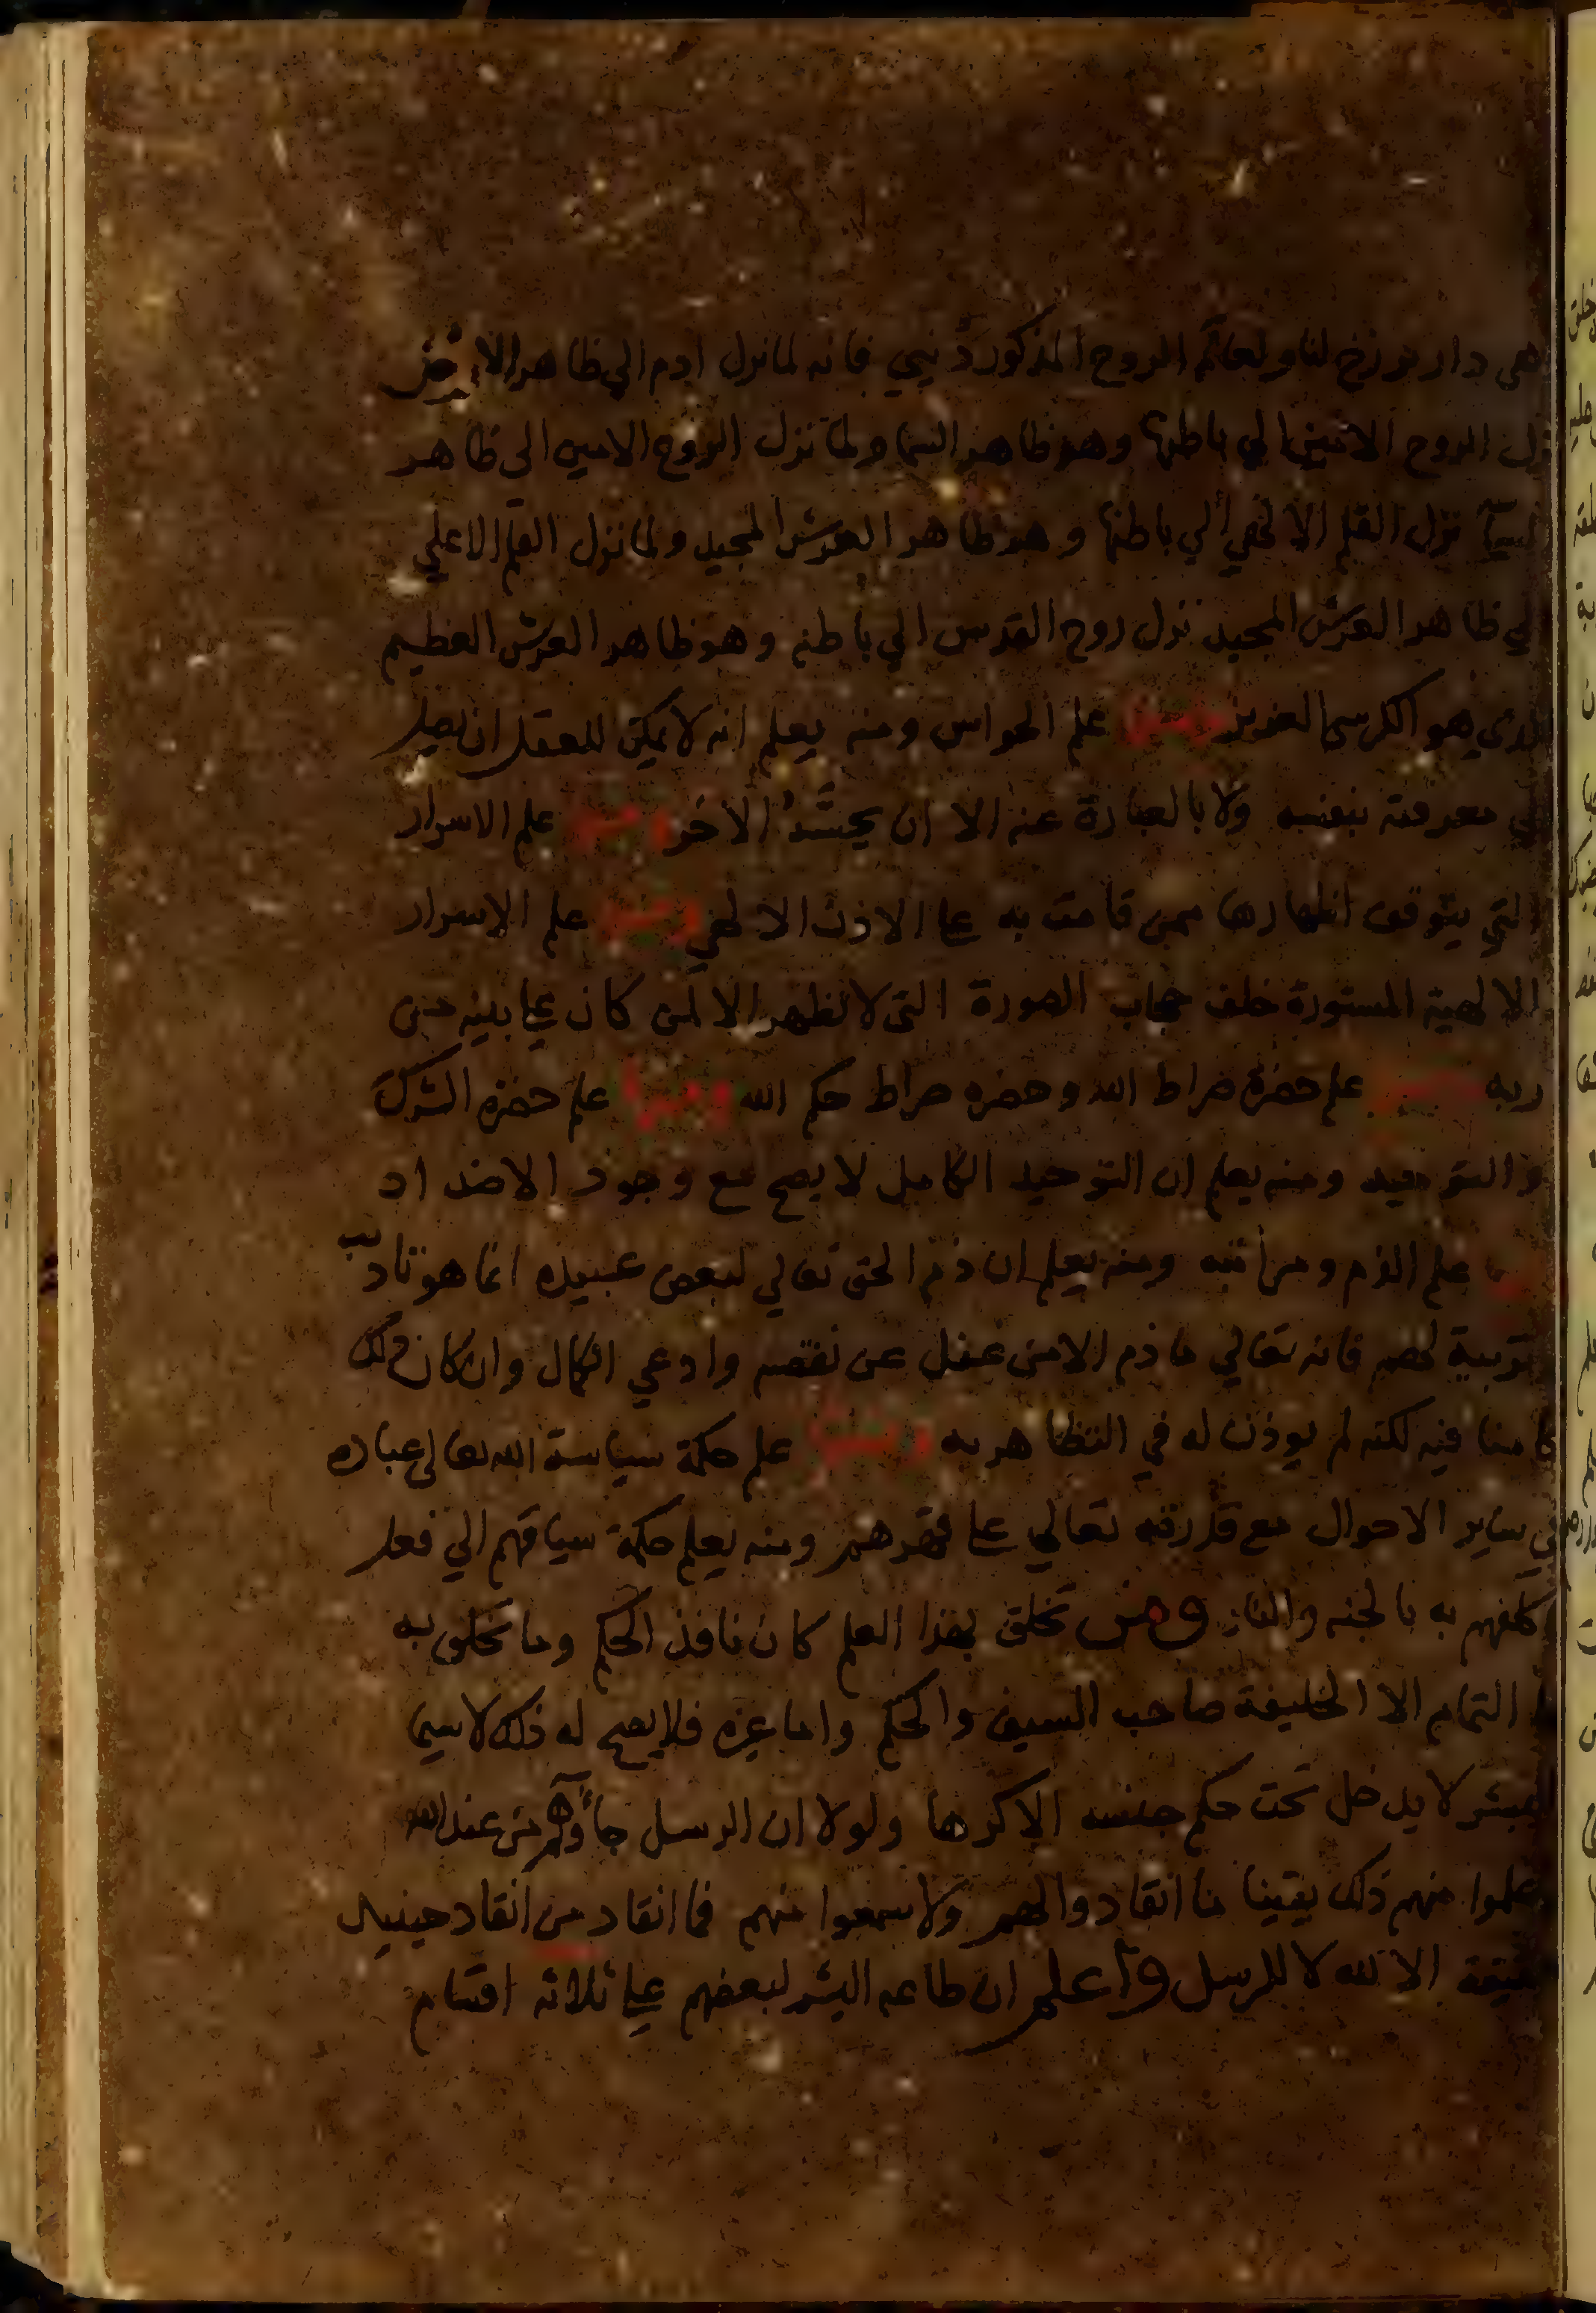 هي دار برزخ لنا ولعالم الروح المذكور دنيي فانه لما نزل ادم الي ظاهر الارض
نزل الروح الامين الي باطنها وهو ظاهر السما ولما نزل الروح الامين الى ظاهر
السمآ نزل القلم الالهي الي باطنها وهو ظاهر العرش المجيد ولما نزل القلم الاعلي
الي ظاهر العرش المجيد نزل روح القدس الي باطنه وهو ظاهر العرش العظيم
الذي هو الكرسي العزيز ومنها علم الحواس ومنه يعلم انه لا يمكن للعقل ان يصل
الي معرفته بنفسه ولا بالعبارة عنه الا ان الاخر ومنها علم الاسرار
التي يتوقف اظهارها ممن قامت به علي الاذن الالهي ومنها علم الاسرار
الالهية المستورة خلف حجاب الصورة التي لا تظهر الا لمن كان علي بينه من
ربه ومنها علم حضرة صراط الله وحضره صراط حكم الله ومنها علم حضرة الشرك
والتوحيد ومنه يعلم ان التوحيد الكامل لا يصح مع وجود الاضداد
ومنها علم الذم ومراتبه ومنه يعلم ان ذم الحق تعالي لبعض عبيده انما هو تاديب
وتربية لهم فانه تعالي ما ذم الا من غفل عن نقصه وادعي الكمال وان كان ذلك
كامنا فيه لكنه لم يوذن له في التظاهر به ومنها علم حكمة سياسة الله تعالى عباده
في ساير الاحوال مع قدرته تعالي علي قهرهم ومنه يعلم حكمة سياقهم الي فعل
ما كلفهم به بالجنه والنار ومن تخلق بهذا العلم كان نافذ الحكم وما تخلق به
علي التمام الا الخليفة صاحب السيف والحكم واما غيره فلا يصح له ذلك لاسيما
البشر لا يدخل تحت حكم جنسه الا كرها ولولا ان الرسل جأوهم من عند الله
وعلموا منهم ذلك يقينا ما انقادوا لهم ولا سمعوا منهم فما انقاد من انقاد حينيذ
حقيقة الا لله لا للرسل واعلم ان طاعه البشر لبعضهم علي ثلاثه اقسام